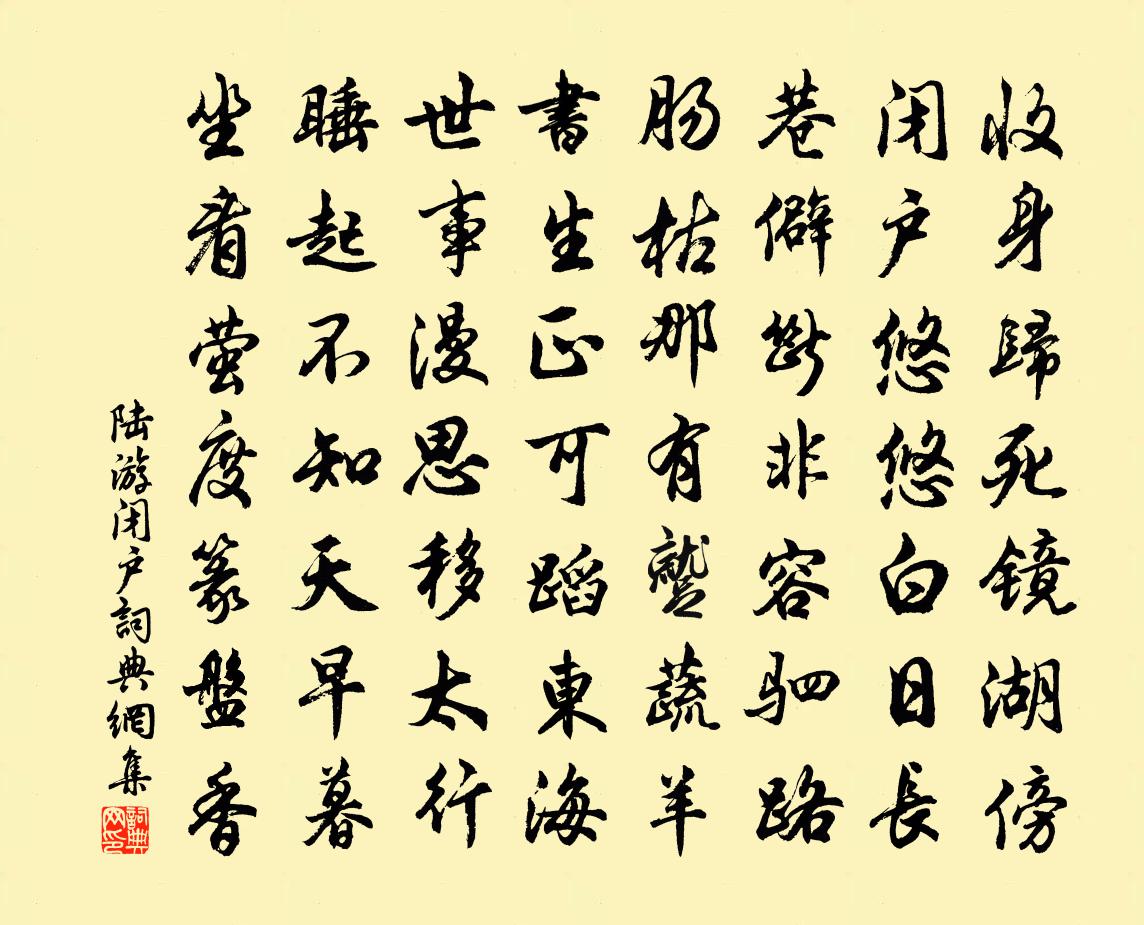 收身歸死镜湖傍
闭户悠悠白日長
巷僻斷非容驷路
肠枯那有蹔蔬羊
書生正可蹈東海
世事漫思移太行
睡起不知天早暮
坐看萤度篆盤香
陆游闭户詞典網集
詞典网印